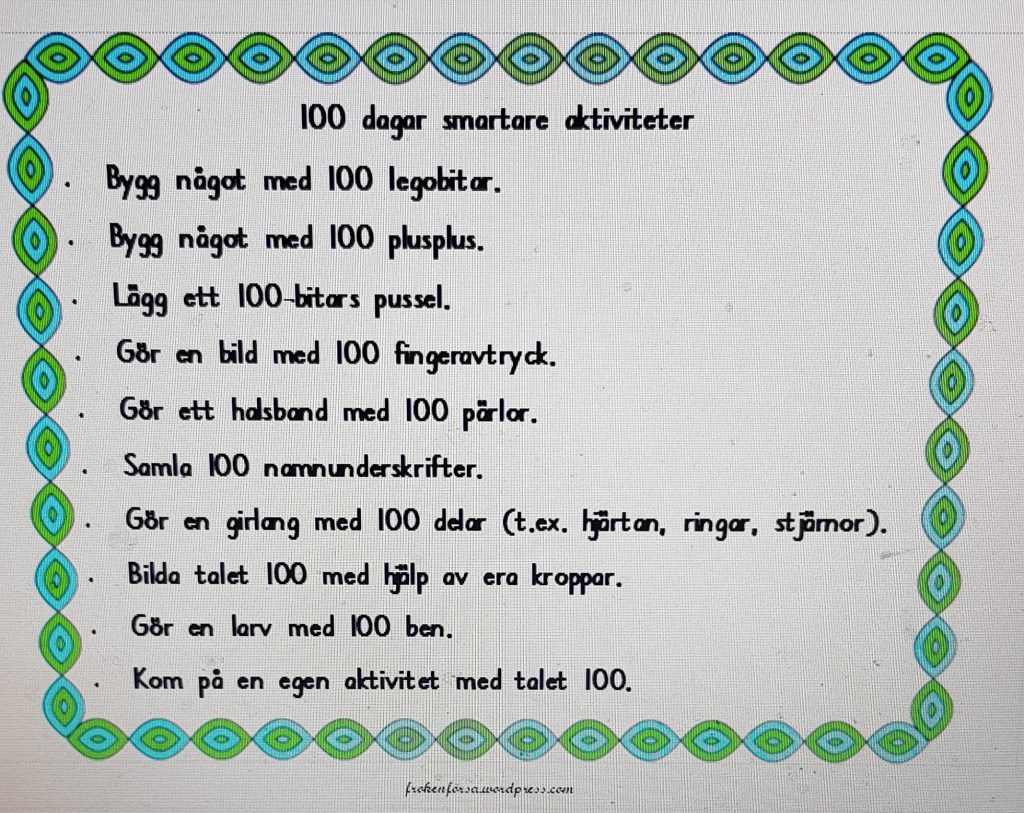 100 dagar smartare aktiviteter
. Bygg något med 100 legobitar.
. Bygg något med 100 plusplus.
. Lägg ett 100-bitars pussel.
. Gör en bild med 100 fingeravtryck.
. Gör ett halsband med 100 pärlor.
. Samla 100 namnunderskrifter.
. Gör en girlang med 100 delar (t.ex. hjärtan, ringar, stjärnor).
. Bilda talet 100 med hjälp av era kroppar.
. Gör en larv med 100 ben.
. Kom på en egen aktivitet med talet 100.
frokenforsa.wordpress.com